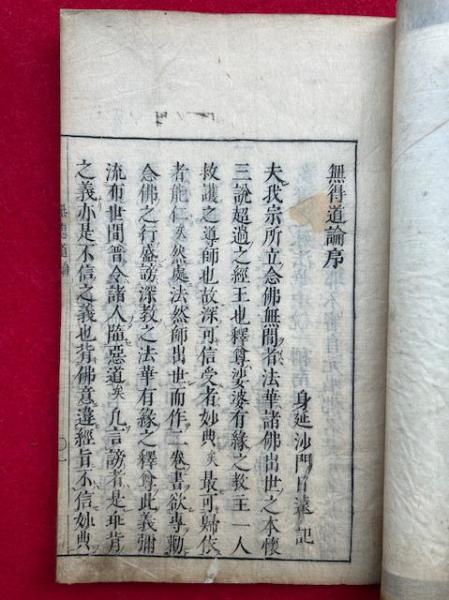 無得道論序
身延沙門日遠 記
夫我宗所立念佛無間者法華諸佛出世之本懷
三說超過之經王也釋尊娑婆有緣之教主一人
救護之導師也故深可信受者妙典矣最可歸依
者能仁矣然處法然師出世而作二卷書欲專勸
念佛之行盛謗深教之法華有緣之釋尊此義彌
流布世間普令諸人臨惡道矣凡言謗者是乖背
之義亦是不信之義也背佛意違經旨不信妙典